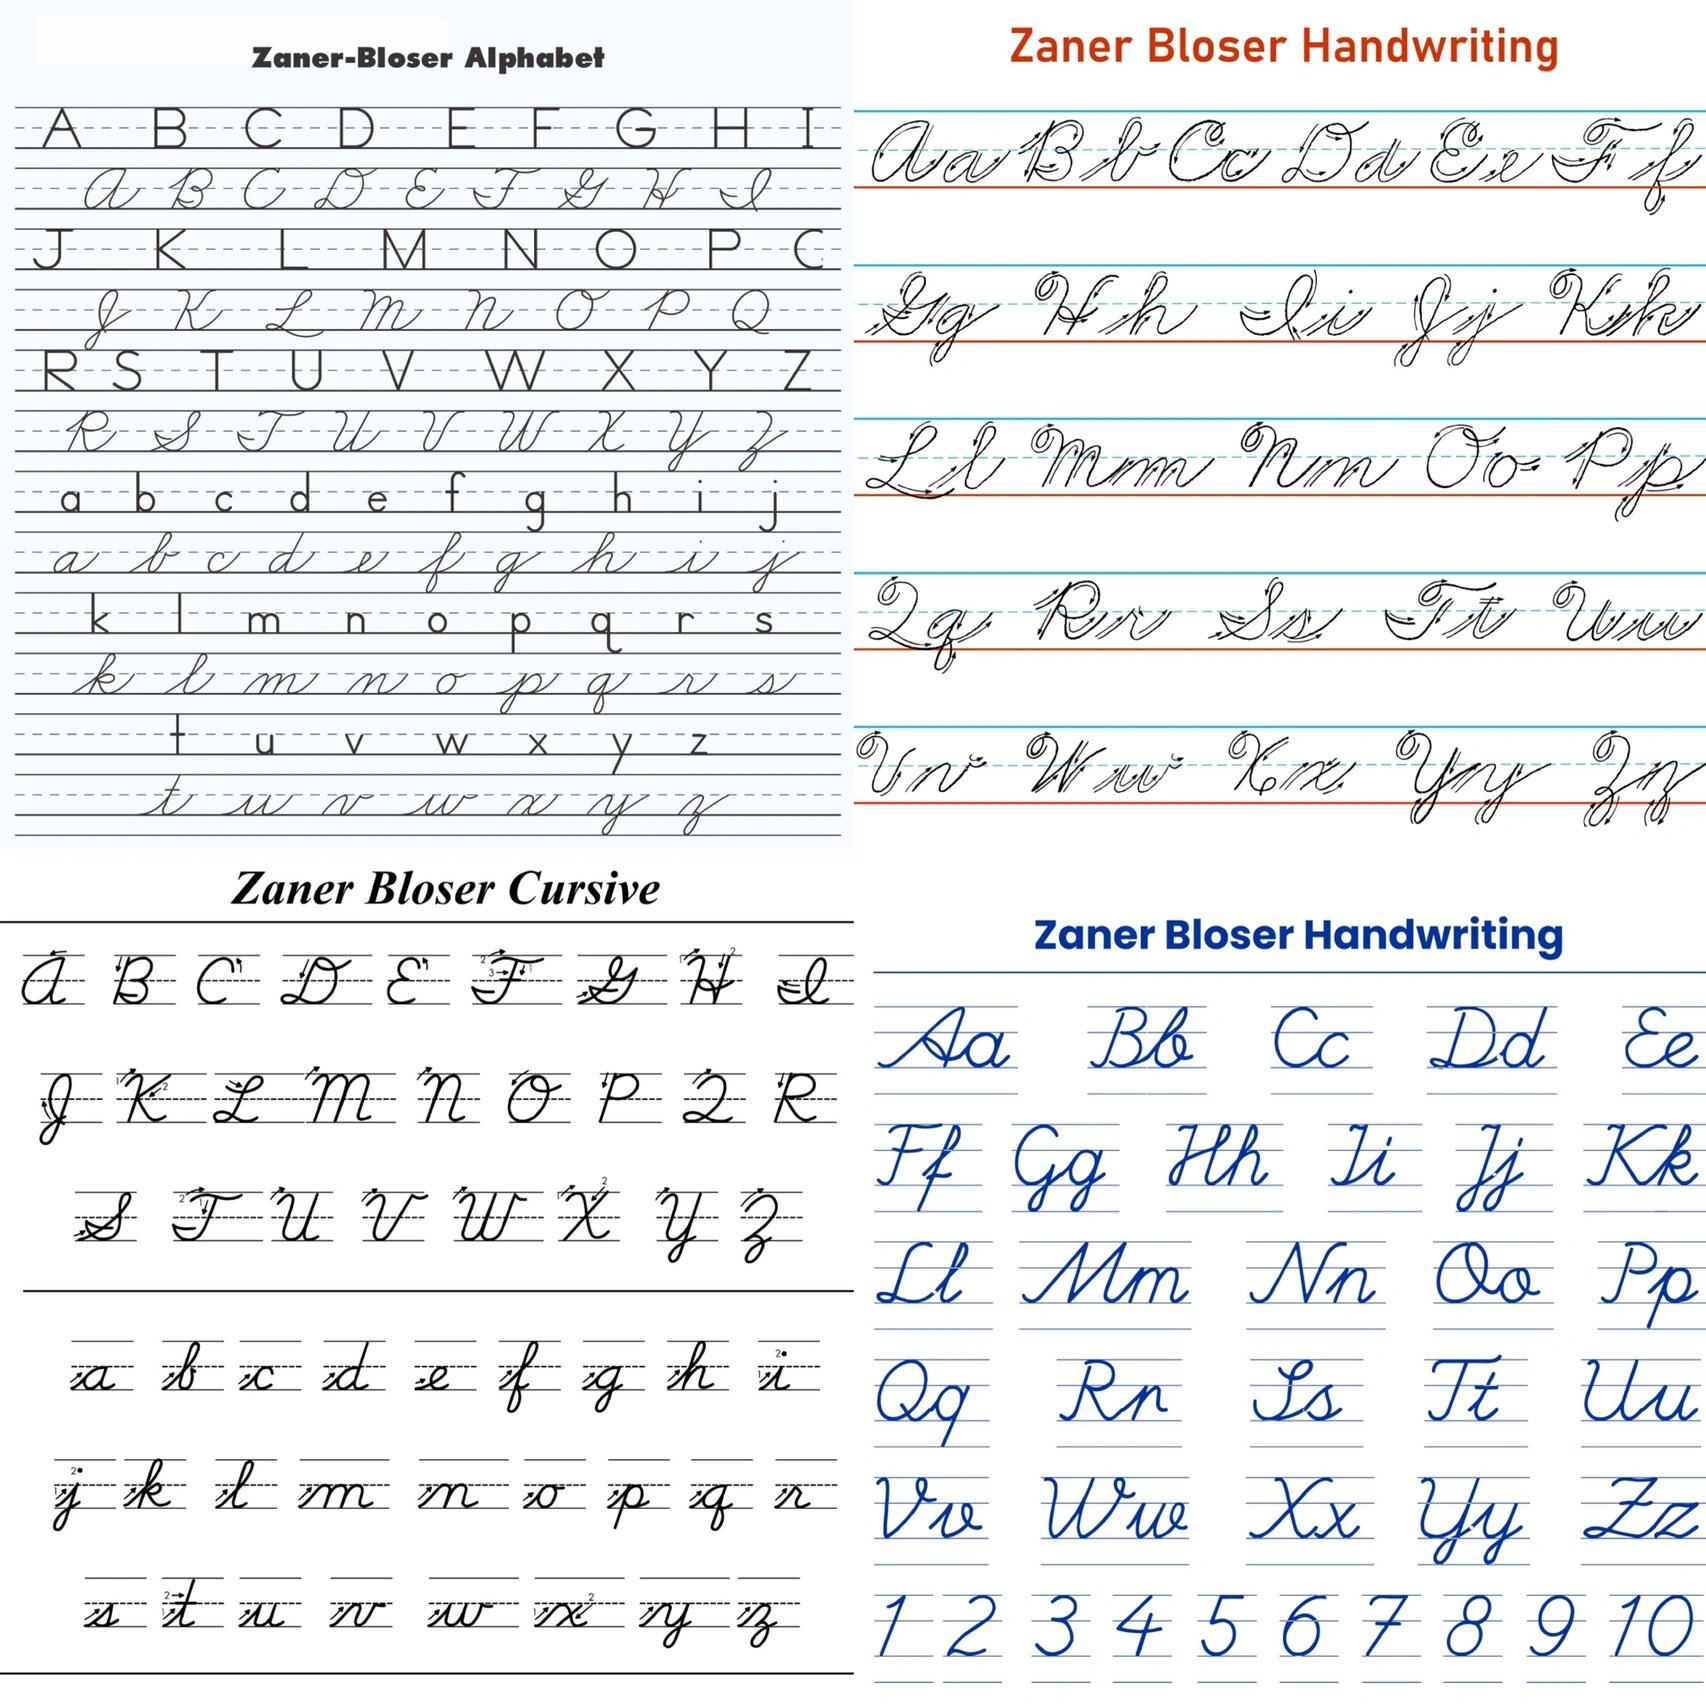 Zaner-Bloser Alphabet
A B C D E F G H I
A B C D E F G H I
J K L M N O P Q
J K L M N O P Q
R S T U V W X Y Z
R S T U V W X Y Z
a b c d e f g h i j
a b c d e f g h i j
k l m n o p q r s
k l m n o p q r s
t u v w x y z
t u v w x y z
Zaner Bloser Handwriting
Aa Bb Cc Dd Ee Ff
Gg Hh Ii Jj Kk
Ll Mm Nn Oo Pp
Qq Rr Ss Tt Uu
Vv Ww Xx Yy Zz
Zaner Bloser Cursive
A B C D E F G H I
J K L M N O P Q R
S T U V W X Y Z
a b c d e f g h i
j k l m n o p q r
s t u v w x y z
Zaner Bloser Handwriting
Aa Bb Cc Dd Ee
Ff Gg Hh Ii Jj Kk
Ll Mm Nn Oo Pp
Qq Rr Ss Tt Uu
Vv Ww Xx Yy Zz
1 2 3 4 5 6 7 8 9 10